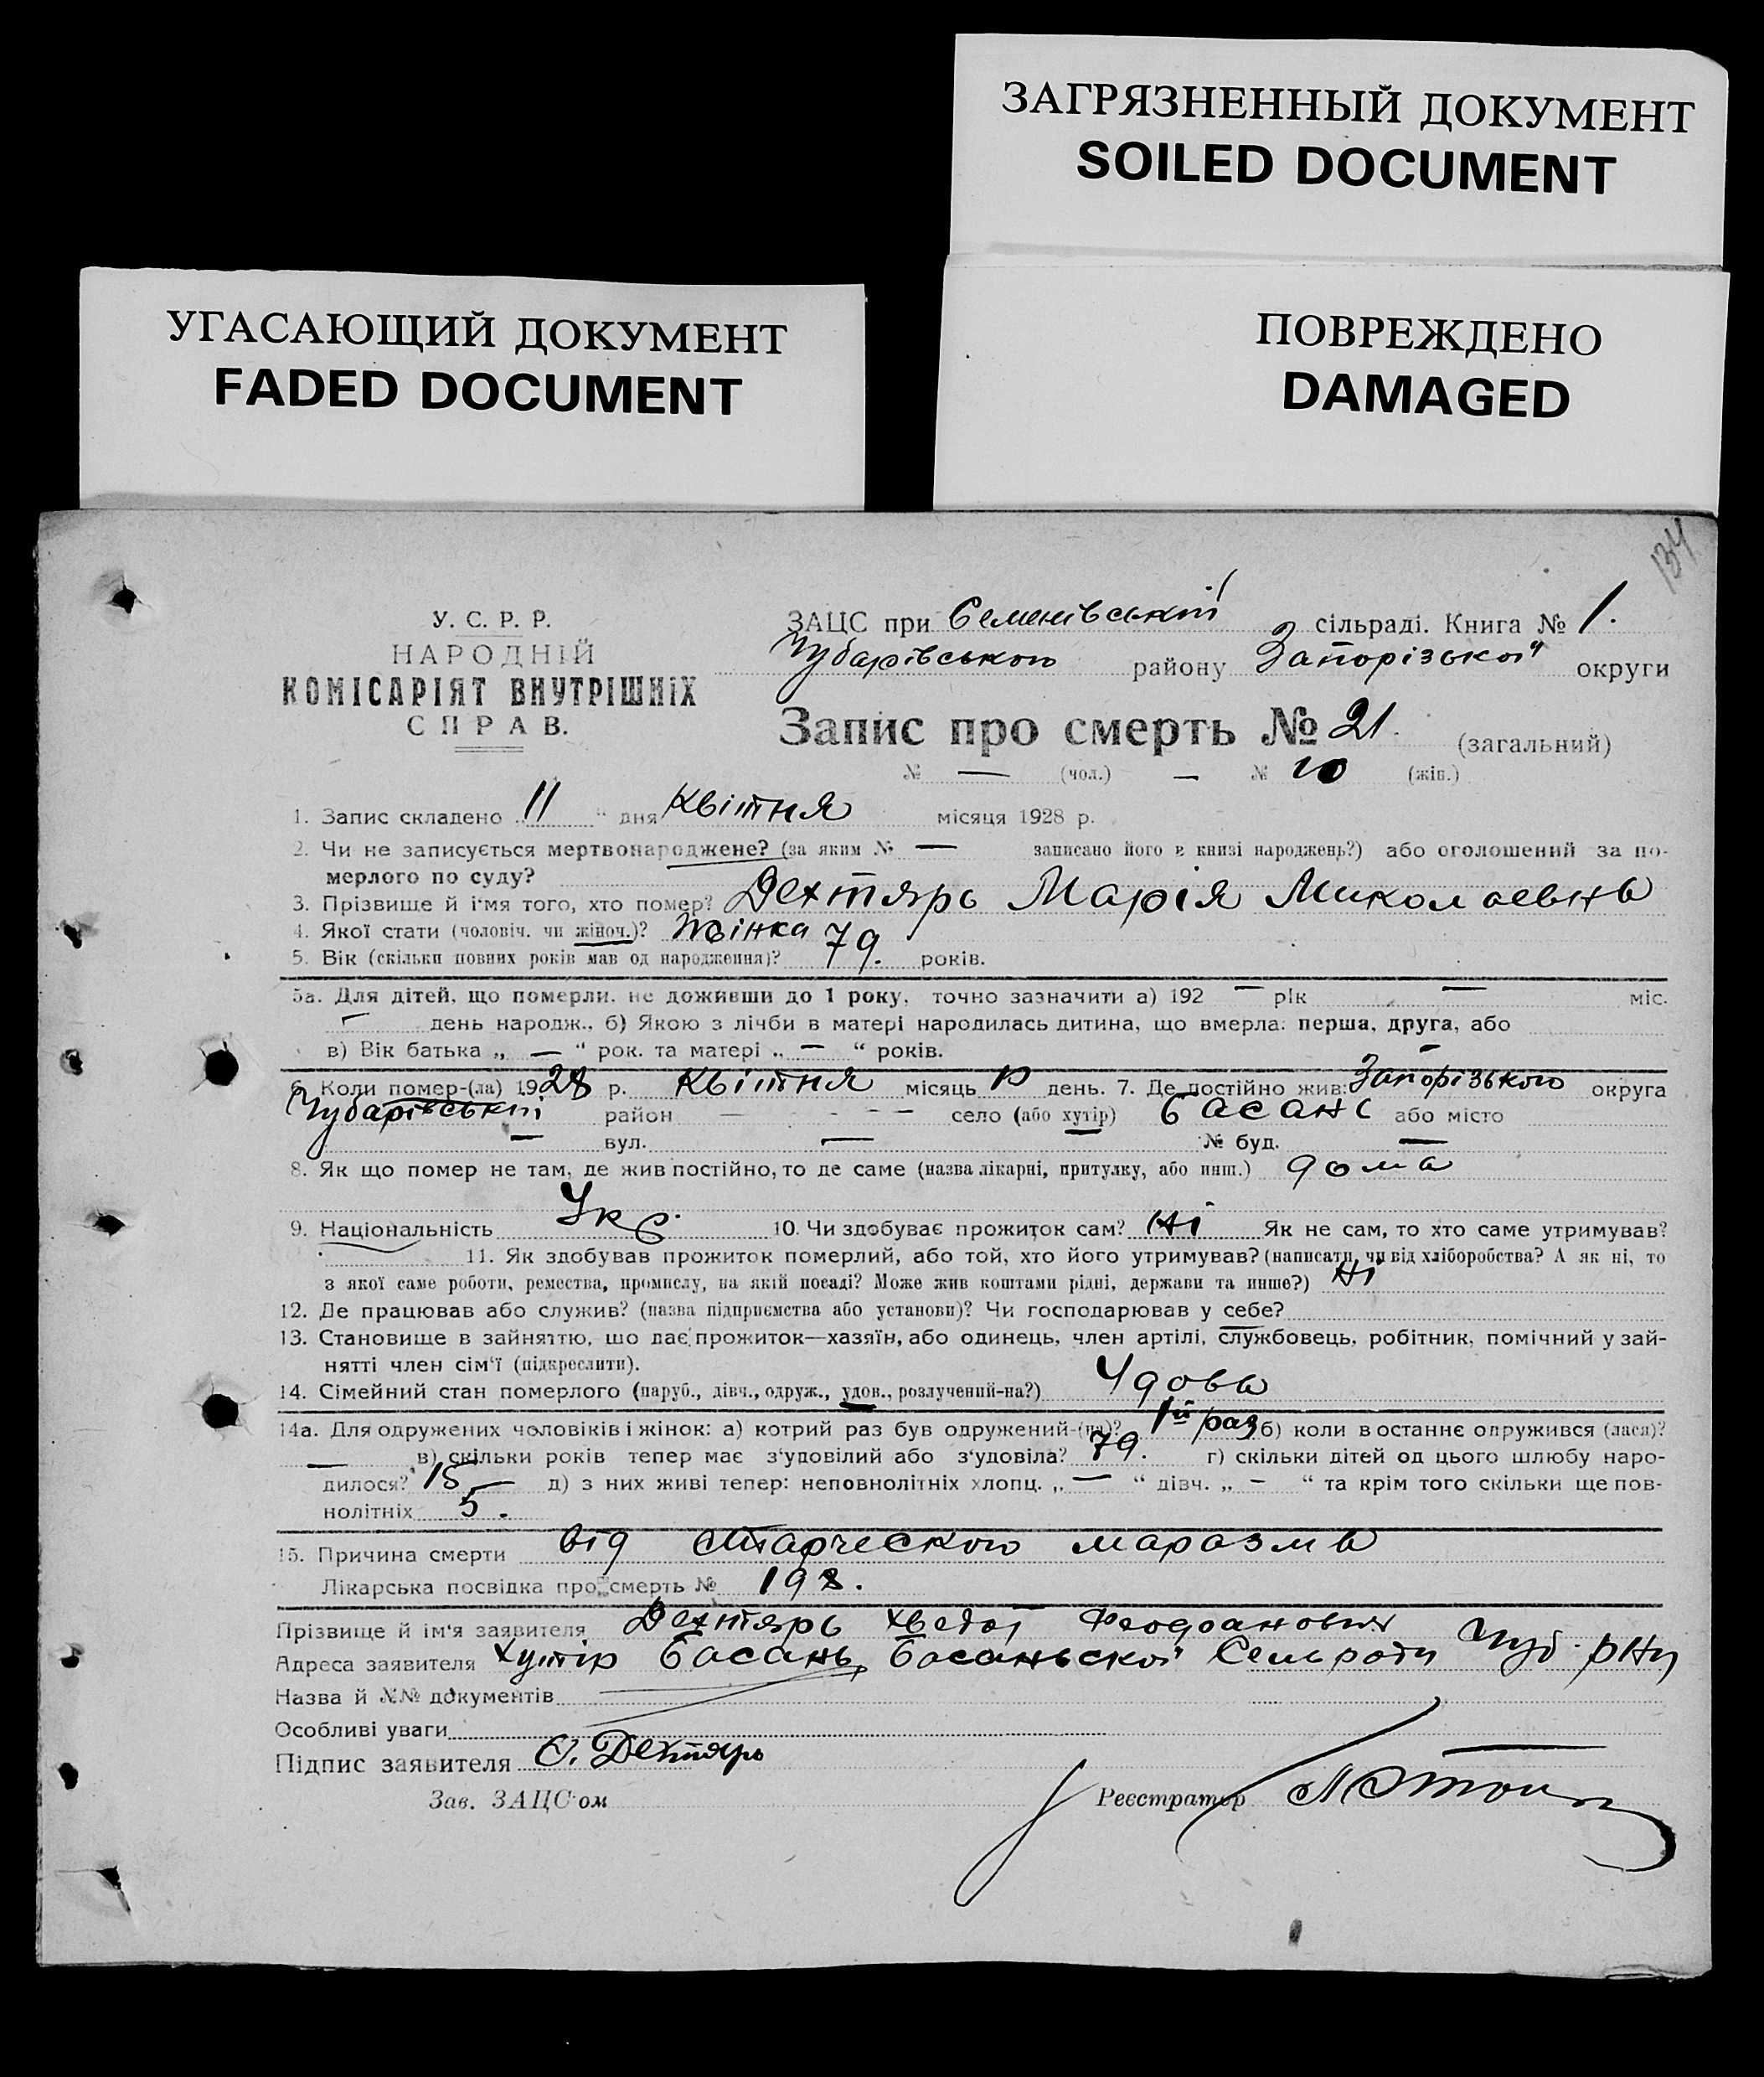 ЗАГРЯЗНЕННЫЙ ДОКУМЕНТ
SOILED DOCUMENT
УГАСАЮЩИЙ ДОКУМЕНТ
FADED DOCUMENT
ПОВРЕЖДЕНО
DAMAGED
134
У. С. Р. Р.
НАРОДНІЙ
КОМІСАРІЯТ ВНУТРІШНІХ
СПРАВ.
ЗАЦС при Семенівській сільраді. Книга № 1.
Чубарівського району Запорізької округи
Запис про смерть № 21. (загальний)
№ — (чол.) — № 10 (жін.)
1. Запис складено „11“ дня Квітня місяця 1928 р.
2. Чи не записується мертвонароджене? (за яким № — записано його в книзі народжень?) або оголошений за по-
мерлого по суду?
3. Прізвище й ім'я того, хто помер? Дехтярь Марія Миколаевна
4. Якої стати (чоловіч. чи жіноч.)? Жінка
5. Вік (скільки повних років мав од народження)? 79. років.
5а. Для дітей, що померли, не доживши до 1 року, точно зазначити а) 192 — рік — міс.
— день народж., б) Якою з лічби в матері народилась дитина, що вмерла: перша, друга, або
в) Вік батька „ — “ рок. та матері „ — “ років.
6. Коли помер-(ла) 1928 р. Квітня місяць 10 день. 7. Де постійно жив: Запорізького округа
Чубарівській район — - - - — село (або хутір) Басань або місто —
— вул. — № буд. —
8. Як що помер не там, де жив постійно, то де саме (назва лікарні, притулку, або инш.) дома
9. Національність Укр. 10. Чи здобуває прожиток сам? Ні Як не сам, то хто саме утримував?
11. Як здобував прожиток померлий, або той, хто його утримував? (написати, чи від хліборобства? А як ні, то
з якої саме роботи, ремества, промислу, на якій посаді? Може жив коштами рідні, держави та инше?) Ні
12. Де працював або служив? (назва підприємства або установи)? Чи господарював у себе?
13. Становище в зайняттю, що дає прожиток—хазяїн, або одинець, член артілі, службовець, робітник, помічний у зай-
нятті член сім'ї (підкреслити).
14. Сімейний стан померлого (паруб., дівч., одруж., удов., розлучений-на?) Удова
14а. Для одружених чоловіків і жінок: а) котрий раз був одружений-(на)? 1й раз б) коли востаннє одружився (лася)?
— в) скільки років тепер має з'удовілий або з'удовіла? 79. г) скільки дітей од цього шлюбу наро-
дилося? 15 — д) з них живі тепер: неповнолітніх хлопц. „ — “ дівч. „ — “ та крім того скільки ще пов-
нолітніх 5.
15. Причина смерти від старческого маразма
Лікарська посвідка про смерть № 198.
Прізвище й ім'я заявителя Дехтярь
Адреса заявителя Хутір Басань, Басаньской Сельради Чуб. рну
Назва й №№ документів
Особливі уваги
Підпис заявителя Дехтярь
Зав. ЗАЦС'ом Реєстратор